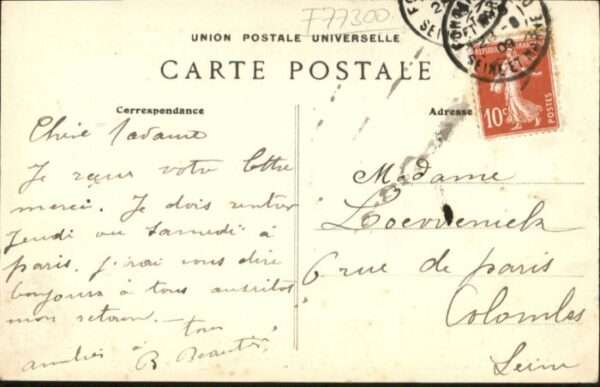 F77300
UNION POSTALE UNIVERSELLE
CARTE POSTALE
Correspondance
Adresse
RÉPUBLIQUE FRANÇAISE
10c POSTES
SEINE ET MARNE
Chère Madame
Je reçus votre lettre
merci. Je dois rentrer
Jeudi ou Samedi à
paris. j'irai vous dire
bonjour à tous aussitot
mon retour.
amitiés à tous
R.
Madame
6 rue de paris
Colombes
Seine